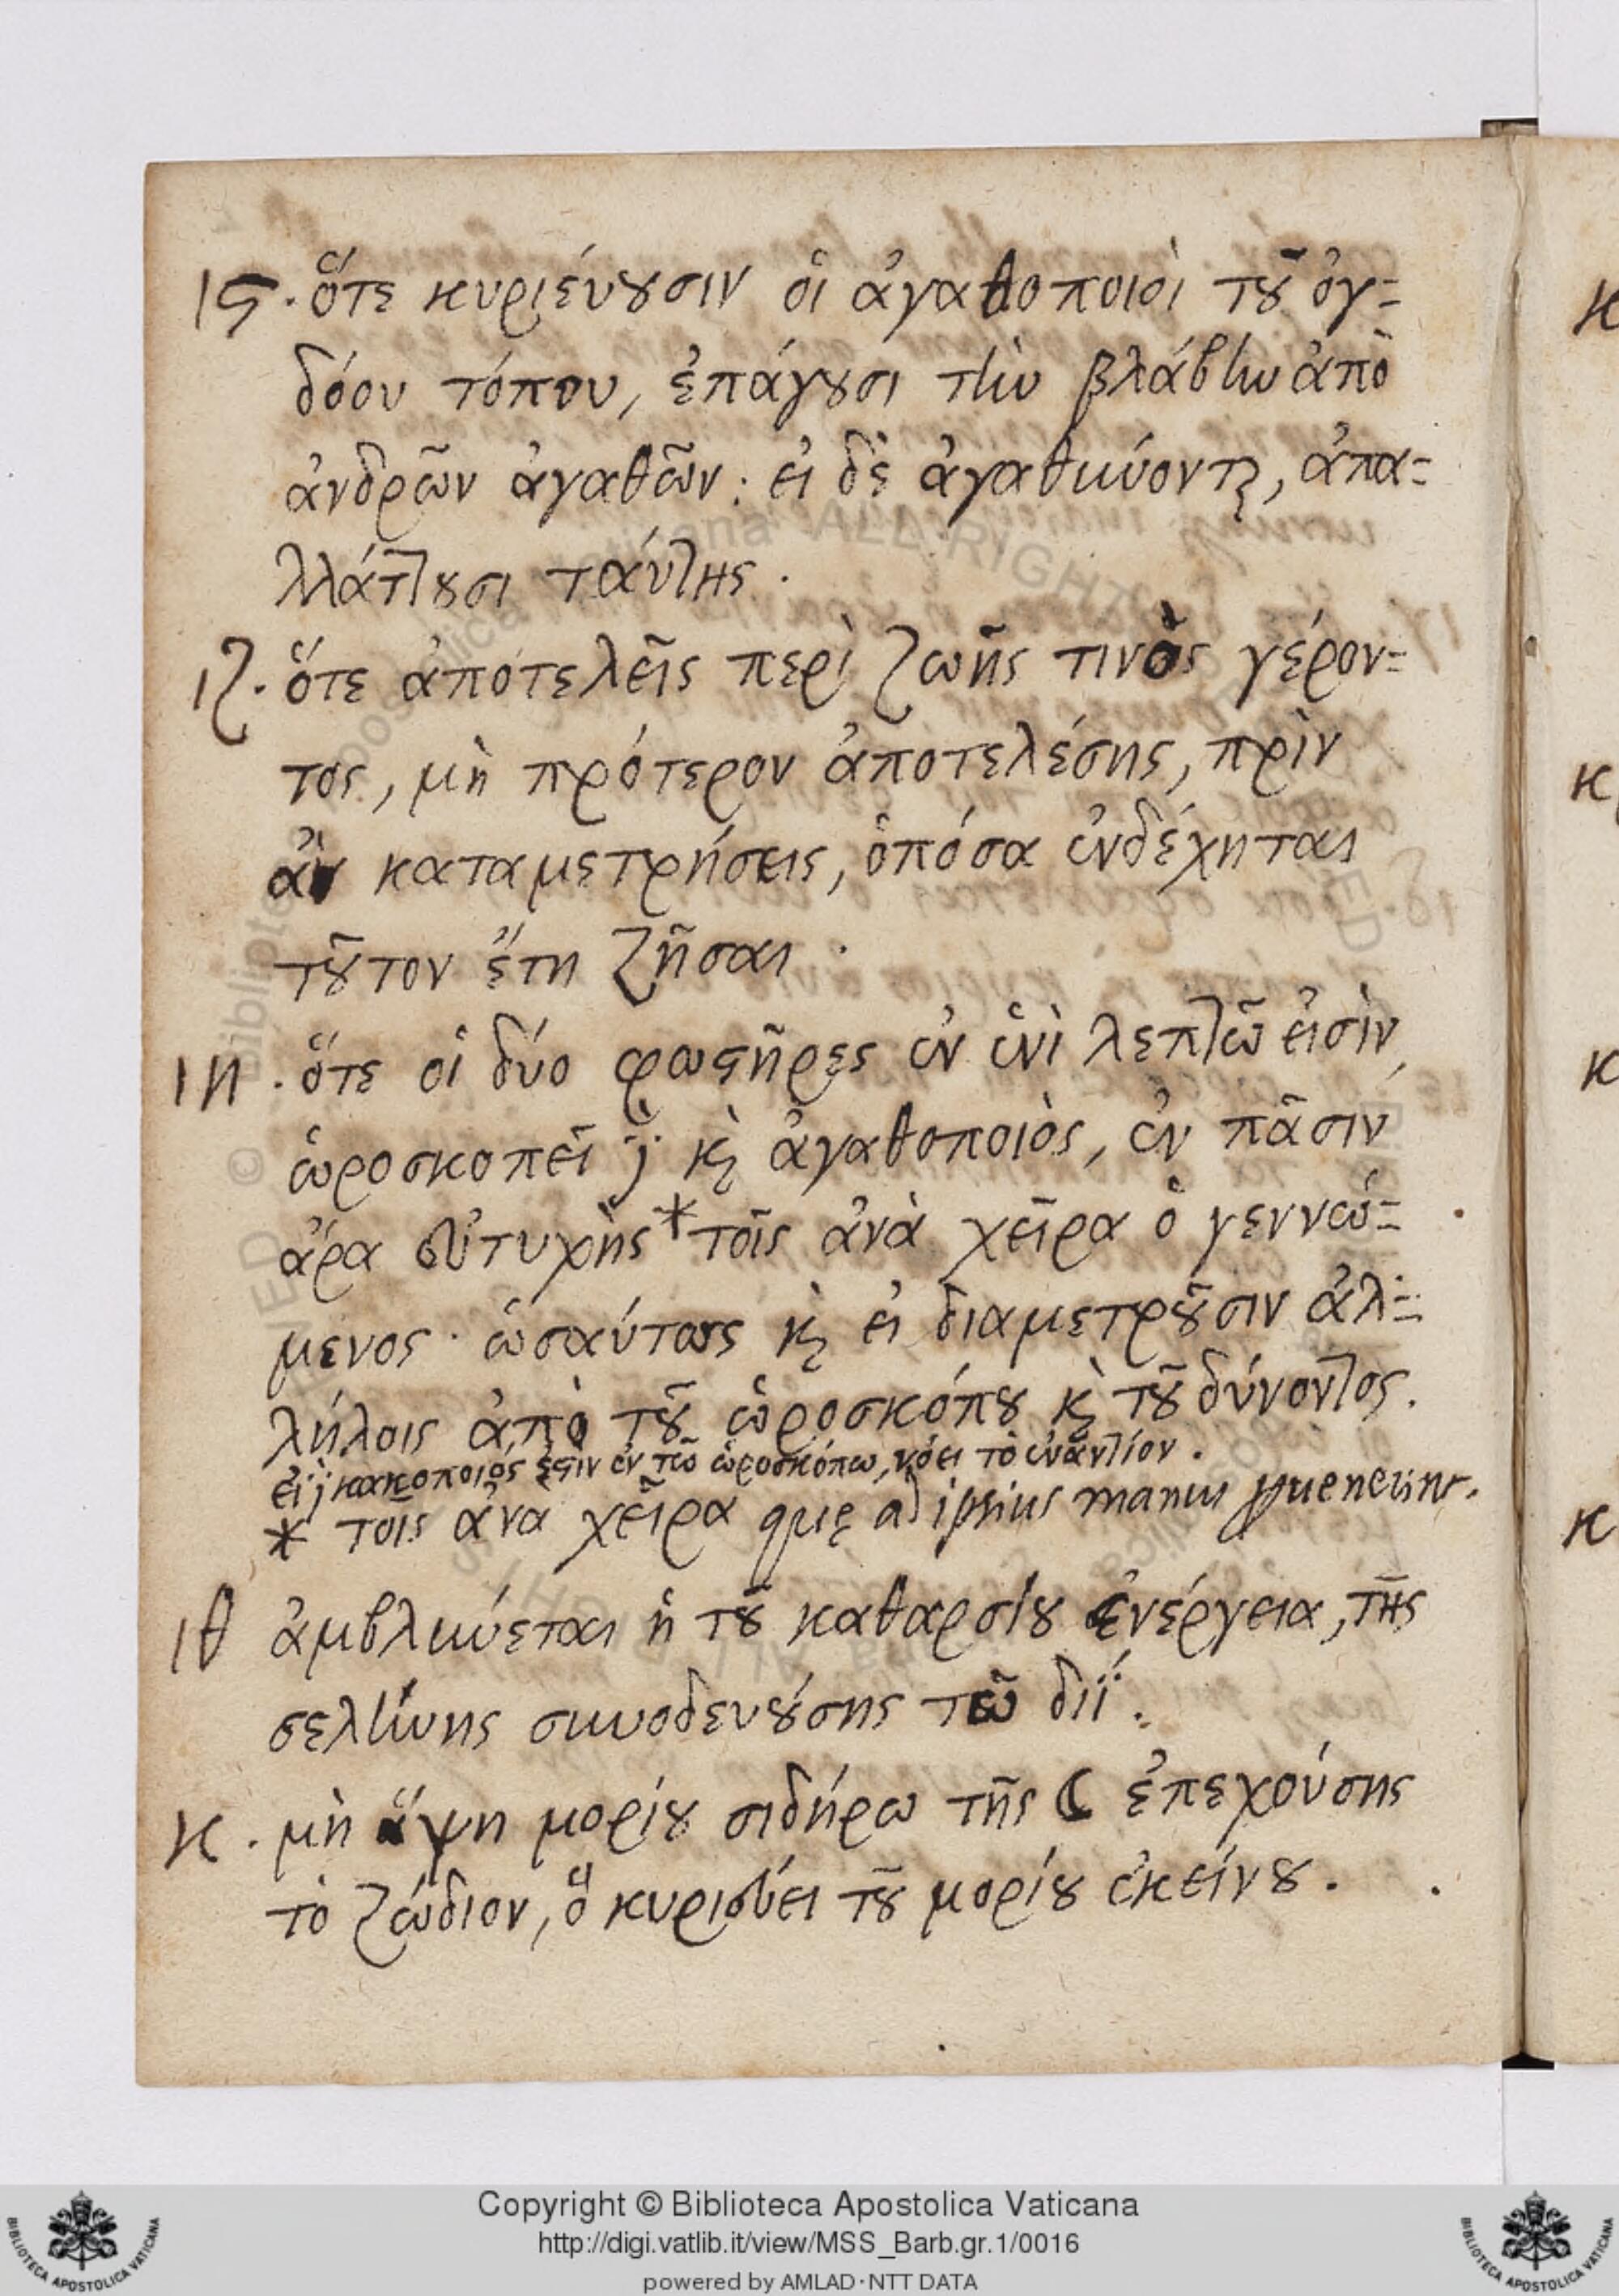 ιϛ. ὅτε κυριέυουσιν οἱ ἀγαθοποιοὶ τοῦ ὀγ=
δόου τόπου, ἐπάγουσι τὴν βλάβην ἀπὸ
ἀνδρῶν ἀγαθῶν: ει δὲ ἀγαθύνοντες, ἀπα=
λλάττουσι ταύτης.
ιζ. ὅτε ἀποτελεῖς περὶ ζωῆς τινὸς γέρον=
τος, μὴ πρότερον ἀποτελέσης, πρὶν
ἀν καταμετρήσεις, ὁπόσα ἐνδέχηται
τοῦτον ἔτη ζῆσαι.
ιη. ὅτε οἱ δύο φωστῆρες ἐν ἑνὶ λεπτῶ εἰσὶν,
ὡροσκοπεῖ δὲ καὶ ἀγαθοποιὸς, ἐν πᾶσιν
ἄρα εὐτυχὴς * τοῖς ἀνὰ χεῖρα ὁ γεννώ=
μενος. ὡσαύτως καὶ ει διαμετροῦσιν ἀλ=
λήλοις ἀπὸ τοῦ ὡροσκόπου καὶ τοῦ δύνοντος.
εἰ δὲ κακοποιός ἐστιν ἐν τῶ ὡροσκόπω, νόει τὸ ἐναντίον.
* τοις ἀνα χεῖρα quę ad ipsius manus puenerint.
ιθ ἀμβλύνεται ἡ τοῦ καθαρσίου ἐνέργεια, τῆς
σελήνης συνοδευούσης τῶ διΐ.
κ. μὴ ἅψη μορίου σιδήρω τῆς ☾ ἐπεχούσης
τὸ ζώδιον, ὃ κυριεύει τοῦ μορίου ἐκείνου.
Copyright © Biblioteca Apostolica Vaticana
http://digi.vatlib.it/view/MSS_Barb.gr.1/0016
powered by AMLAD·NTT DATA